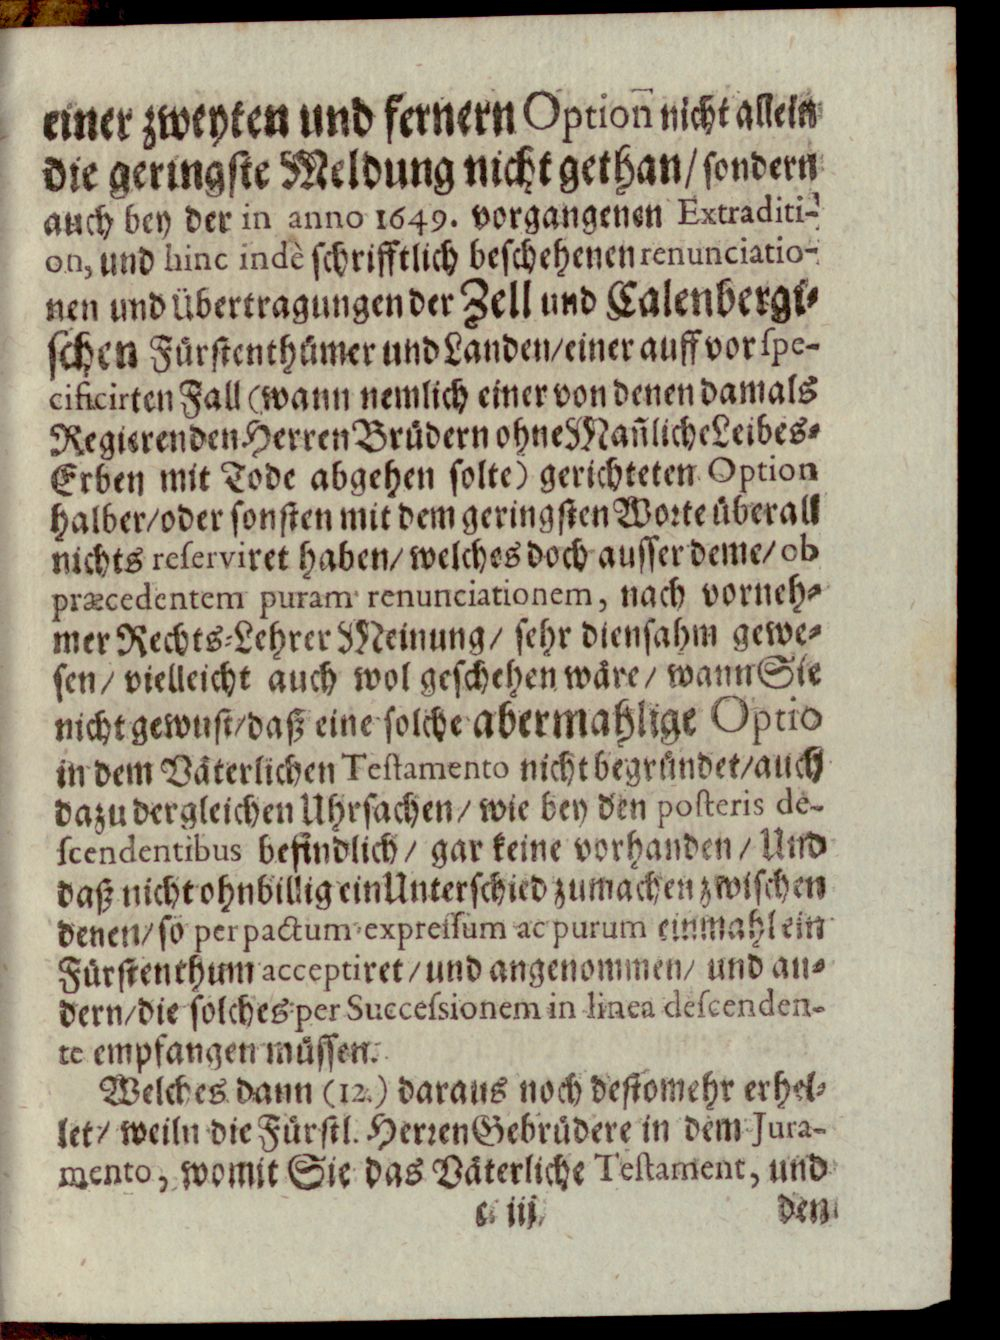 einer zweyten und fernern Optioñ nicht allein
die geringste Meldung nicht gethan/ sondern
auch bey der in anno 1649. vorgangenen Extraditi-
on, und hinc indè schrifftlich beschehenen renunciatio-
nen und übertragungen der Zell und Calenbergi-
schen Fürstenthümer und Landen/ einer auff vor spe-
cificirten Fall (wann nemlich einer von denen damals
Regierenden Herren Brüdern ohne Mañliche Leibes-
Erben mit Tode abgehen solte) gerichteten Option
halber/ oder sonsten mit dem geringsten Worte überall
nichts reserviret haben/ welches doch ausser deme/ ob
præcedentem puram renunciationem, nach vorneh-
mer Rechts-Lehrer Meinung/ sehr diensahm gewe-
sen/ vielleicht auch wol geschehen wäre/ wann Sie
nicht gewust/ daß eine solche abermahlige Optio
in dem Väterlichen Testamento nicht begründet/ auch
dazu dergleichen Uhrsachen/ wie bey den posteris de-
scendentibus befindlich/ gar keine vorhanden/ Und
daß nicht ohnbillig ein Unterschied zumachen zwischen
denen/ so per pactum expressum ac purum einmahl ein
Fürstenthum acceptiret/ und angenommen/ und an-
dern/ die solches per Successionem in linea descenden-
te empfangen müssen.
Welches dann (12.) daraus noch destomehr erhel-
let/ weiln die Fürstl. Herren Gebrüdere in dem Jura-
mento, womit Sie das Väterliche Testament, und
c iij den